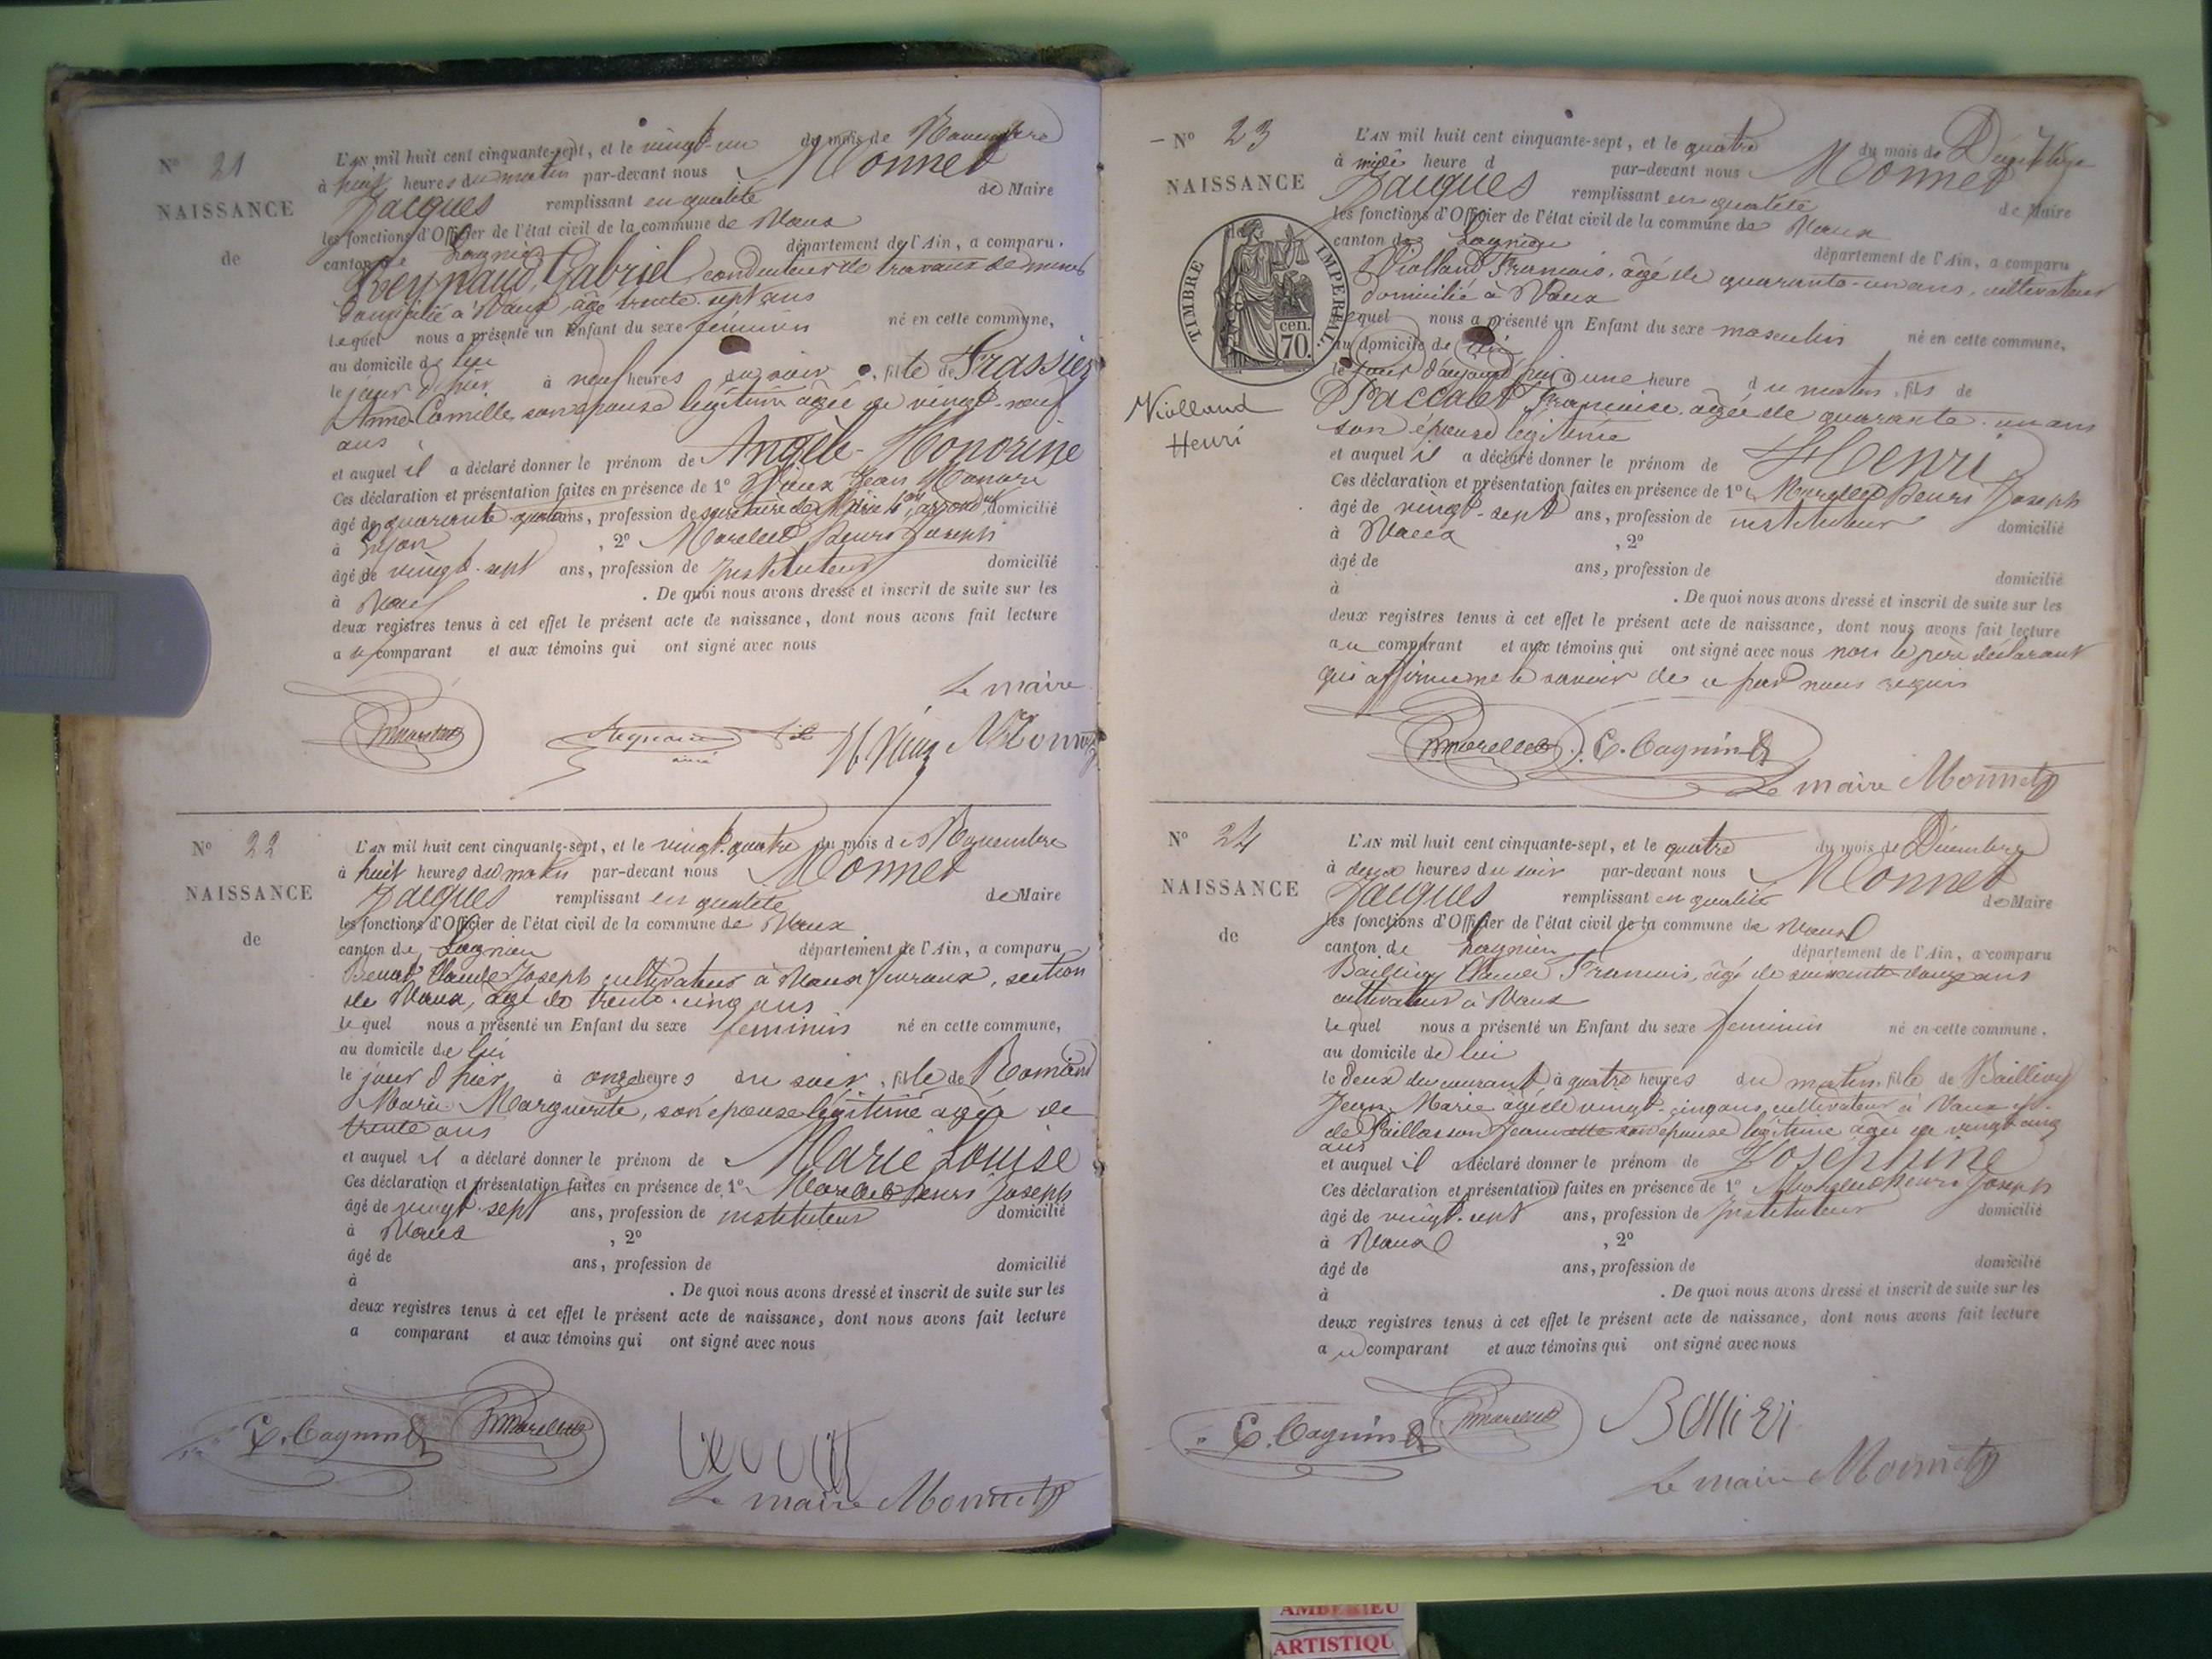 N° 21
NAISSANCE
de
L'AN mil huit cent cinquante-sept, et le vingt-un du mois de Novembre
à huit heures du matin par-devant nous Monnet
Jacques remplissant en qualité de Maire
les fonctions d'Officier de l'état civil de la commune de Vaux
canton de Lagnieu département de l'Ain, a comparu
Reynaud, Gabriel, conducteur de travaux de mines
domicilié à Vaux, âgé trente-sept ans
lequel nous a présenté un Enfant du sexe féminin né en cette commune,
au domicile de lui
le jour d'hier à neuf heures du soir, fille de Frassier
Anne Camille, son épouse légitime âgée de vingt-neuf
ans
et auquel il a déclaré donner le prénom de Angèle-Honorine
Ces déclaration et présentation faites en présence de 1° Vieux Jean Honoré
âgé de quarante ans, profession de secrétaire de Mairie domicilié
à Lyon, 2° Marellet Henri Joseph
âgé de vingt-sept ans, profession de Instituteur domicilié
à Vaux. De quoi nous avons dressé et inscrit de suite sur les
deux registres tenus à cet effet le présent acte de naissance, dont nous avons fait lecture
a comparant et aux témoins qui ont signé avec nous
Le maire
HVieux Monnet
N° 22
NAISSANCE
de
L'AN mil huit cent cinquante-sept, et le vingt-quatre du mois de Novembre
à huit heures du matin par-devant nous Monnet
Jacques remplissant en qualité de Maire
les fonctions d'Officier de l'état civil de la commune de Vaux
canton de Lagnieu département de l'Ain, a comparu
Claude Joseph cultivateur à Vaux, section
de Vaux, âgé de trente-cinq ans
lequel nous a présenté un Enfant du sexe feminin né en cette commune,
au domicile de lui
le jour d'hier à onze heures du soir, fille de Romand
Marie Marguerite, son épouse légitime âgée de
trente ans
et auquel il a déclaré donner le prénom de Marie Louise
Ces déclaration et présentation faites en présence de 1° Marellet Henri Joseph
âgé de vingt-sept ans, profession de instituteur domicilié
à Vaux, 2°
âgé de ans, profession de domicilié
à . De quoi nous avons dressé et inscrit de suite sur les
deux registres tenus à cet effet le présent acte de naissance, dont nous avons fait lecture
a comparant et aux témoins qui ont signé avec nous
C. Cagnin Marellet
Le maire Monnet
N° 23
NAISSANCE
TIMBRE IMPERIAL.
cen.
70.
Violland
Henri
L'AN mil huit cent cinquante-sept, et le quatre du mois de Décembre
à midi heure d par-devant nous Monnet
Jacques remplissant en qualité de Maire
les fonctions d'Officier de l'état civil de la commune de Vaux
canton de Lagnieu département de l'Ain, a comparu
Violland François, âgé de quarante-un ans, cultivateur
domicilié à Vaux
lequel nous a présenté un Enfant du sexe masculin né en cette commune,
au domicile de lui
le jour d'aujourd'hui à une heure du matin, fils de
Paccalet Françoise, âgée de quarante-un ans
son épouse légitime
et auquel il a déclaré donner le prénom de Henri
Ces déclaration et présentation faites en présence de 1° Marellet Henri Joseph
âgé de vingt-sept ans, profession de instituteur domicilié
à Vaux, 2°
âgé de ans, profession de domicilié
à . De quoi nous avons dressé et inscrit de suite sur les
deux registres tenus à cet effet le présent acte de naissance, dont nous avons fait lecture
au comparant et aux témoins qui ont signé avec nous non le père déclarant
qui affirme ne le savoir de ce par nous requis
Marellet C. Cagnin
Le maire Monnet
N° 24
NAISSANCE
de
L'AN mil huit cent cinquante-sept, et le quatre du mois de Décembre
à deux heures du soir par-devant nous Monnet
Jacques remplissant en qualité de Maire
les fonctions d'Officier de l'état civil de la commune de Vaux
canton de Lagnieu département de l'Ain, a comparu
Baillivy Claude François, âgé de soixante-douze ans
cultivateur à Vaux
lequel nous a présenté un Enfant du sexe feminin né en cette commune.
au domicile de lui
le deux du courant à quatre heures du matin, fille de Baillivy
Jean Marie âgé de vingt-cinq ans, cultivateur à Vaux et
de Paillasson Jeannette son épouse légitime âgée de vingt-cinq
ans
et auquel il a déclaré donner le prénom de Joséphine
Ces déclaration et présentation faites en présence de 1° Marellet Henri Joseph
âgé de vingt-sept ans, profession de Instituteur domicilié
à Vaux, 2°
âgé de ans, profession de domicilié
à . De quoi nous avons dressé et inscrit de suite sur les
deux registres tenus à cet effet le présent acte de naissance, dont nous avons fait lecture
au comparant et aux témoins qui ont signé avec nous
C. Cagnin Marellet
Le maire Monnet
AMBERIEU
ARTISTIQU